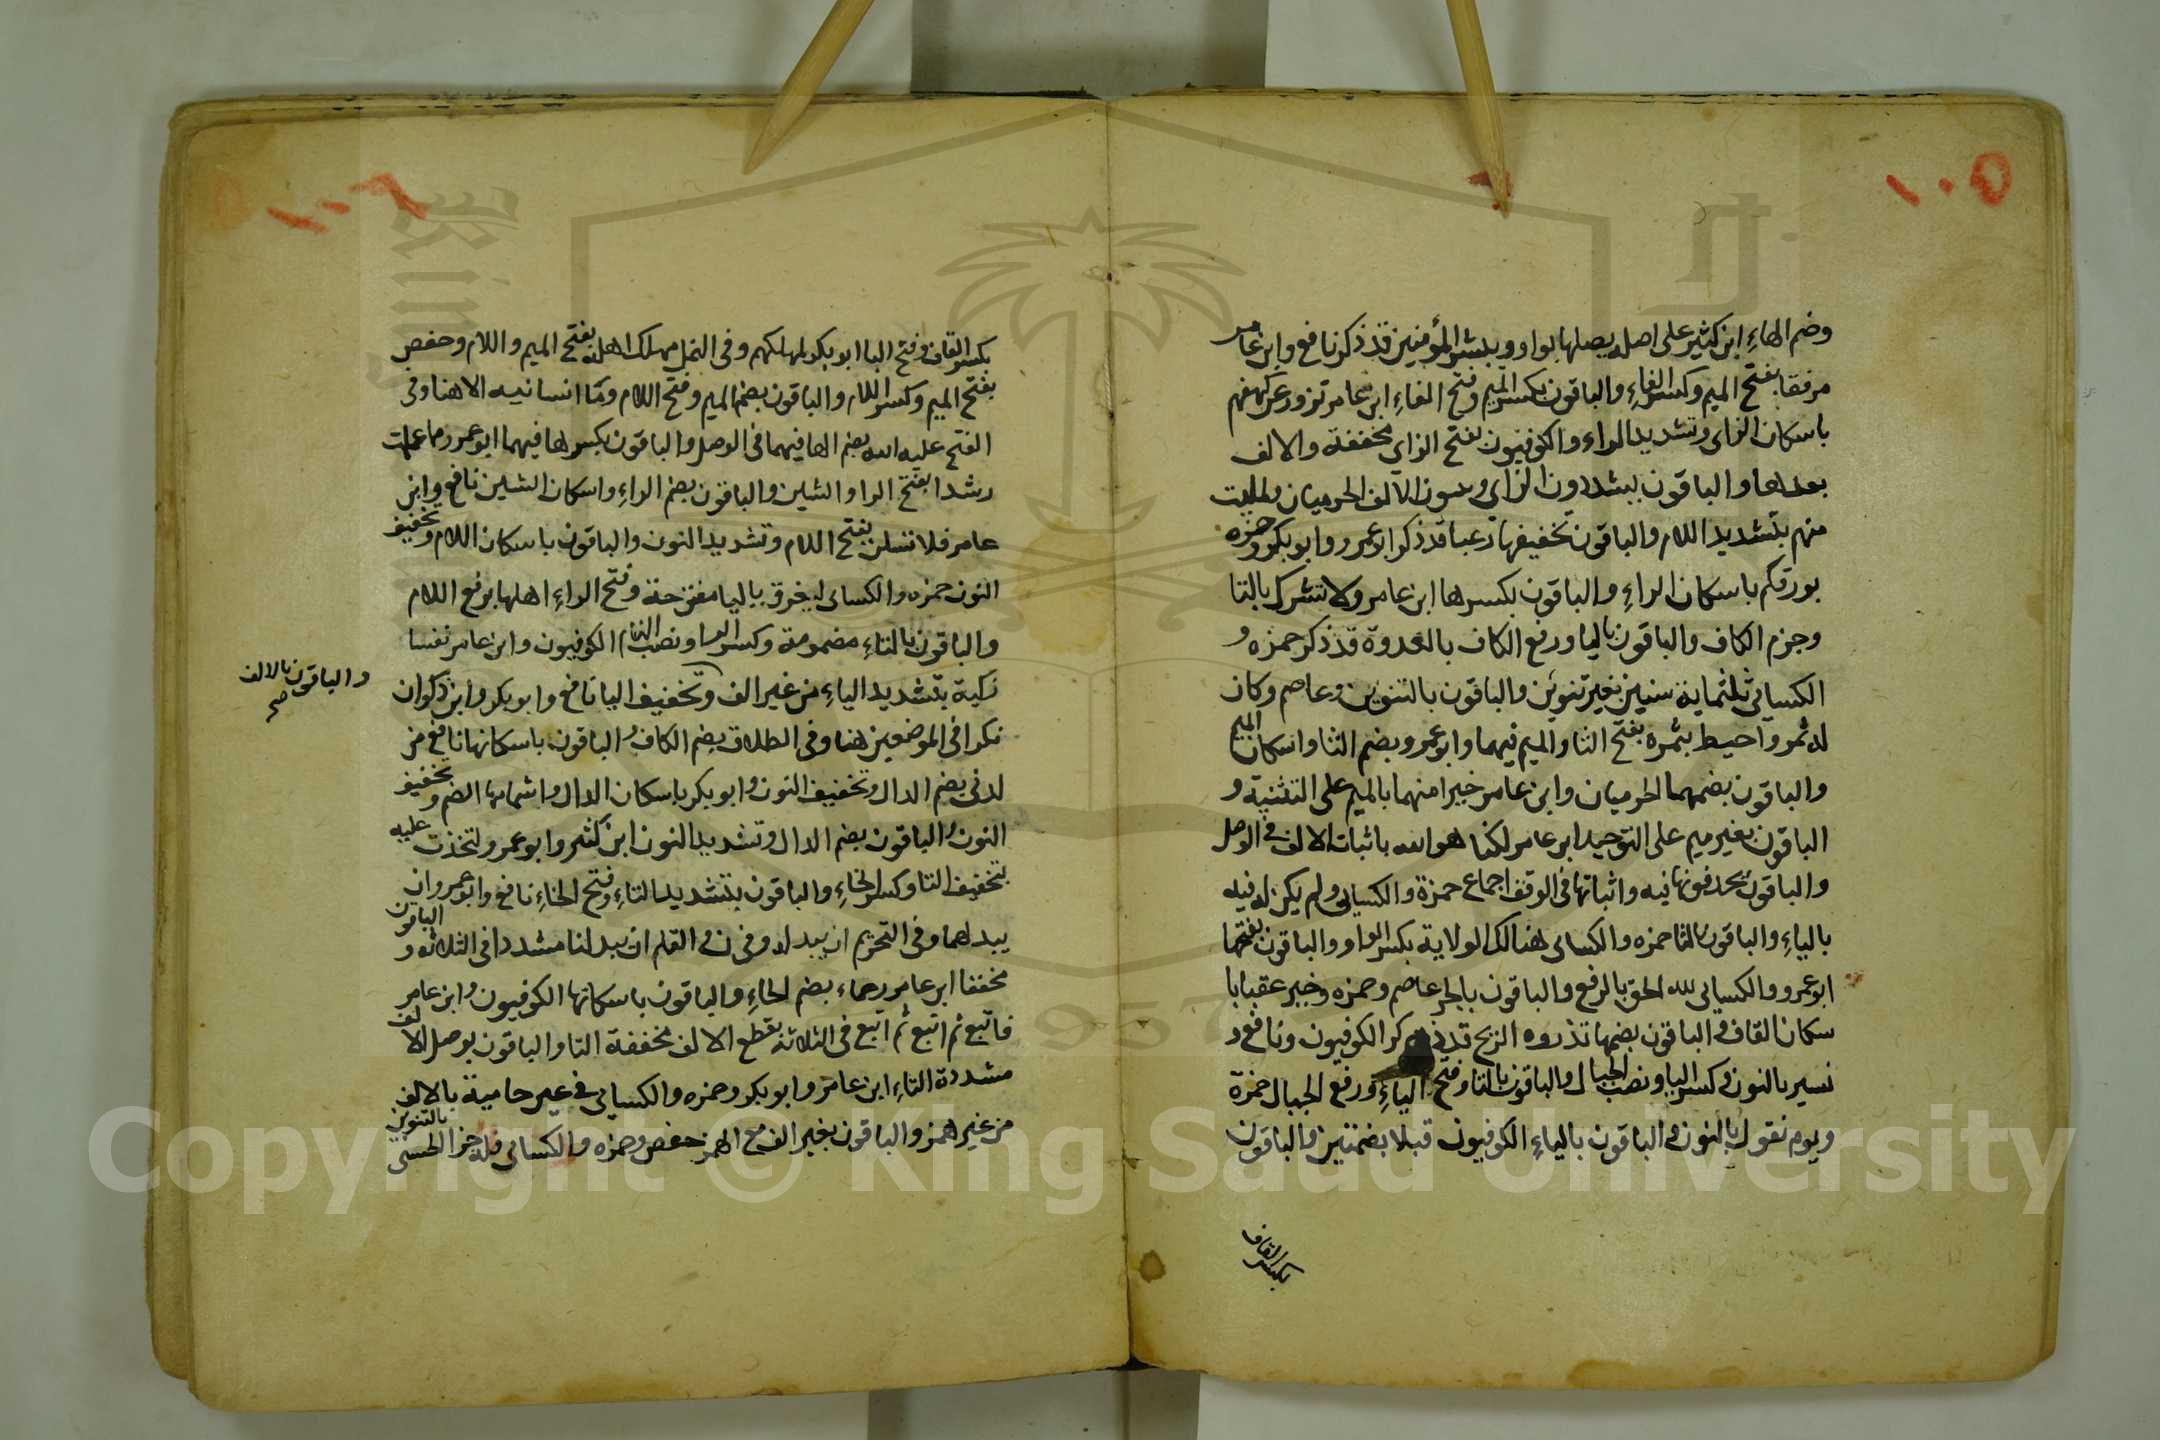 ١٠٥
وضم الهاء ابن كثير على اصله يصلها بواو ويبشر المؤمنين قد ذكر نافع وابن عامر
مرفقا بفتح الميم وكسر الفاء والباقون بكسر الميم وفتح الفاء ابن عامر تزور عن كهفهم
باسكان الزاى وتشديد الراء والكوفيون بفتح الزاى مخففة والالف
بعدها والباقون يشددون الزاى ويثبتون الالف الحرميان ولملئت
منهم بتشديد اللام والباقون بتخفيفها رعبا قد ذكر ابو عمرو وابو بكر وحمزه
بورقكم باسكان الراء والباقون بكسرها ابن عامر ولا تشرك بالتا
وجزم الكاف والباقون باليا ورفع الكاف بالغدوة قد ذكر حمزه و
الكسائى ثلثماية سنين بغير تنوين والباقون بالتنوين وعاصم وكان
له ثمر واحيط بثمره بفتح الثا والميم فيهما وابو عمرو بضم الثا واسكان الميم
والباقون بضمهما الحرميان وابن عامر خيرا منهما بالميم على التثنية و
الباقون بغير ميم على التوحيد ابن عامر لكنا هو الله باثبات الالف فى الوصل
والباقون يحذفونها فيه واثباتها فى الوقف اجماع حمزة والكسائى ولم يكن له فيه
بالياء والباقون بالتا حمزه والكسائى هنالك الولاية بكسر الواو والباقون بفتحها
ابو عمرو والكسائى لله الحق بالرفع والباقون بالجر عاصم وحمزه وخير عقبا با
سكان القاف والباقون بضمها تذروه الريح قد ذكر الكوفيون ونافع و
نسير بالنون وكسر اليا ونصب الجبال والباقون بالتا وفتح الياء ورفع الجبال حمزة
ويوم نقول بالنون والباقون بالياء الكوفيون قبلا بضمتين والباقون
بكسر القاف
١٠٦
بكسر القاف وفتح البا ابو بكر لمهلكهم وفى النمل مهلك اهله بفتح الميم واللام وحفص
بفتح الميم وكسر اللام والباقون بضم الميم وفتح اللام وما انسانيه الا هنا وفى
الفتح عليه الله بضم الها فيهما فى الوصل والباقون بكسرها فيهما ابو عمرو مما علمت
رشدا بفتح الرا والشين والباقون بضم الراء واسكان الشين نافع وابن
عامر فلا تسلن بفتح اللام وتشديد النون والباقون باسكان اللام وتخفيف
النون حمزه والكسائى ليغرق باليا مفتوحة وفتح الراء اهلها برفع اللام
والباقون بالتاء مضمومة وكسر الرا ونصب اللام الكوفيون وابن عامر نفسا
زكية بتشديد الياء من غير الف وتخفيف اليا نافع وابو بكر وابن ذكوان
والباقون بالالف
صح
نكرا فى الموضعين هنا وفى الطلاق بضم الكاف والباقون باسكانها نافع من
لدنى بضم الدال وتخفيف النون وابو بكر باسكان الدال واشمامها الضم وتخفيف
النون والباقون بضم الدال وتشديد النون ابن كثير وابو عمرو لتخذت عليه
بتخفيف التا وكسر الخاء والباقون بتشديد التاء وفتح الخاء نافع وابو عمرو ان
يبدلهما وفى التحريم ان يبدله وفى ن والقلم ان يبدلنا مشددا فى الثلاثه والباقون
مخففا ابن عامر رحماء بضم الحاء والباقون باسكانها الكوفيون وابن عامر
فاتبع ثم اتبع ثم اتبع فى الثلاثه بقطع الالف مخففة التا والباقون بوصل الالف
مشددة التاء ابن عامر وابو بكر وحمزه والكسائى فى عين حامية بالالف
من غير همز والباقون بغير الف مع الهمز حفص وحمزه والكسائى فله جزا الحسنى بالتنوين
Copyright © King Saud University
1957